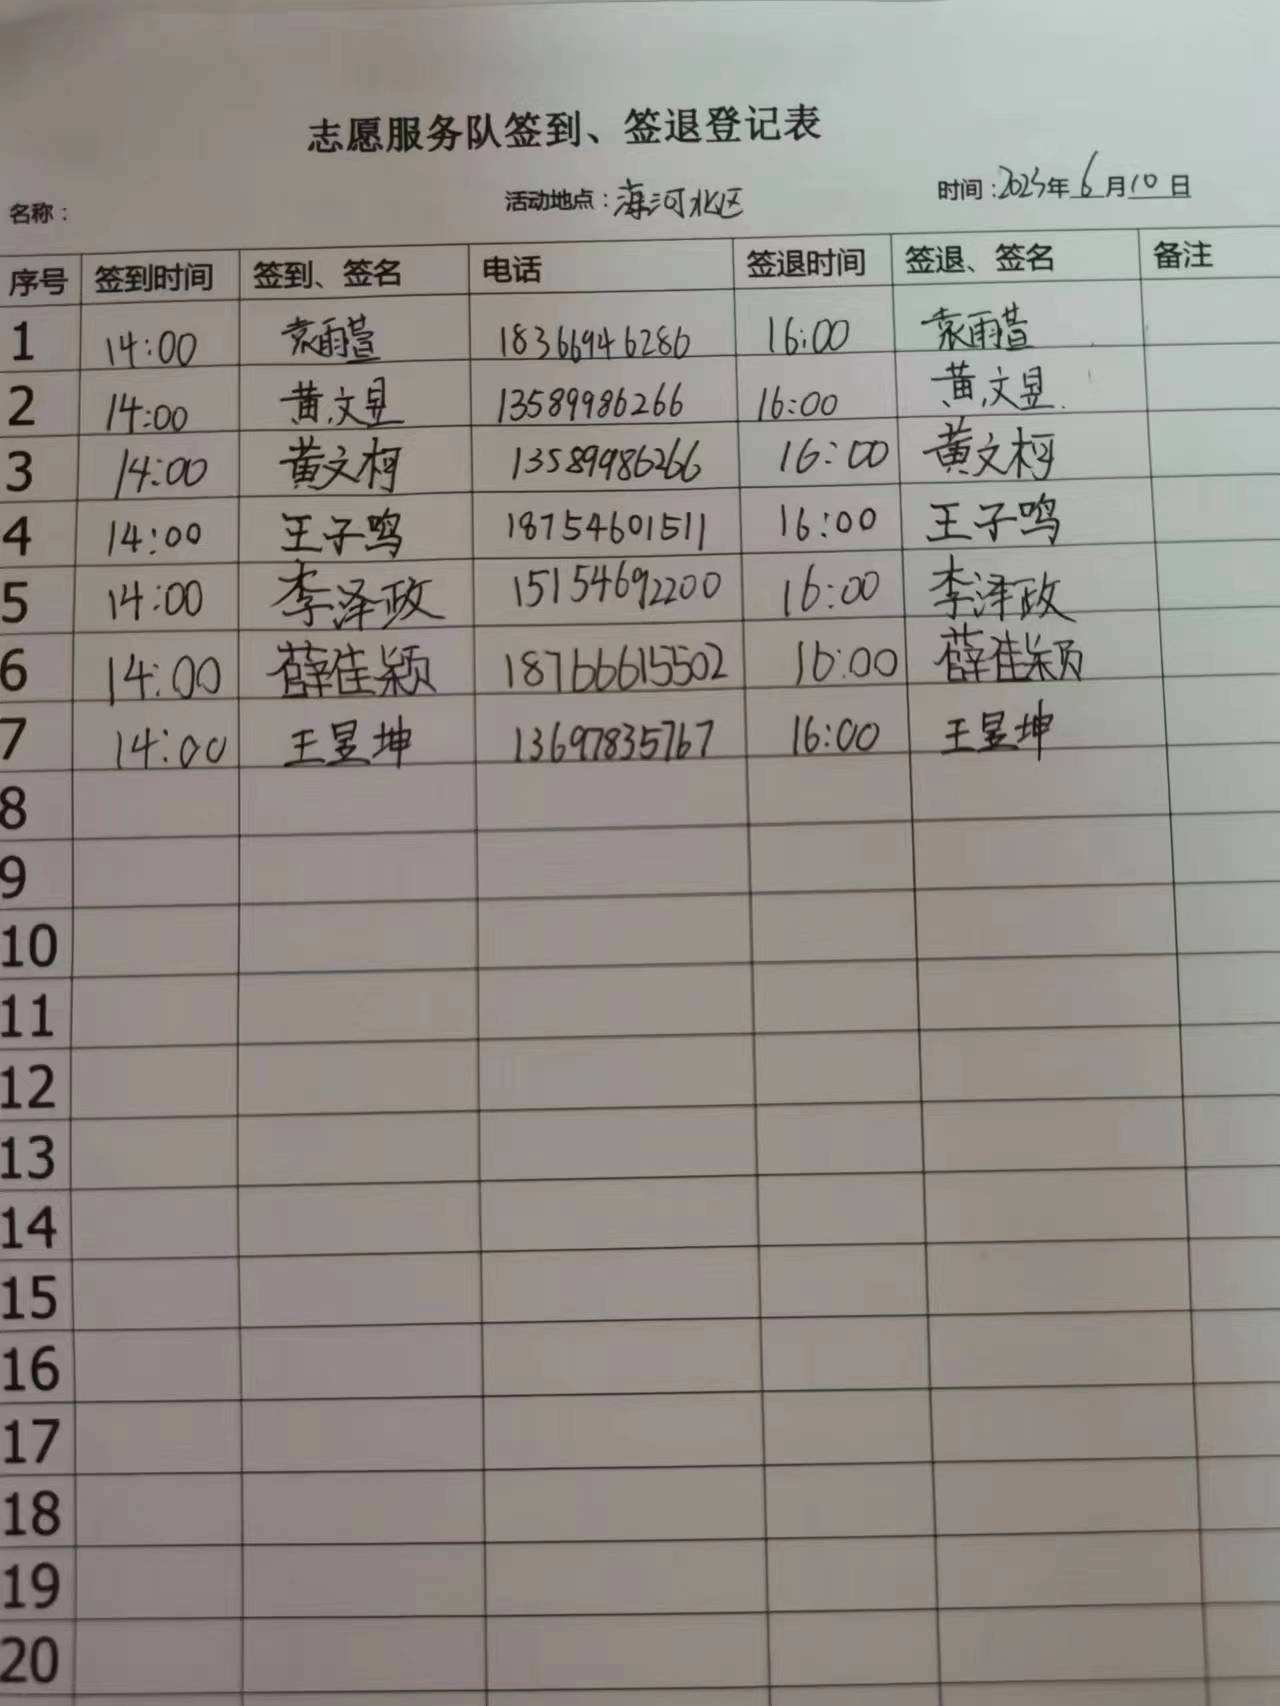 志愿服务队签到、签退登记表
名称： 活动地点：海河北区 时间：2023年6月10日
序号 签到时间 签到、签名 电话 签退时间 签退、签名 备注
1 14:00 袁雨萱 18366946286 16:00 袁雨萱
2 14:00 黄文昱 13589986266 16:00 黄文昱
3 14:00 黄文柯 13589986266 16:00 黄文柯
4 14:00 王子鸣 18754601511 16:00 王子鸣
5 14:00 李泽政 15154692200 16:00 李泽政
6 14:00 薛佳颖 18766615502 16:00 薛佳颖
7 14:00 王昱坤 13697835767 16:00 王昱坤
8
9
10
11
12
13
14
15
16
17
18
19
20